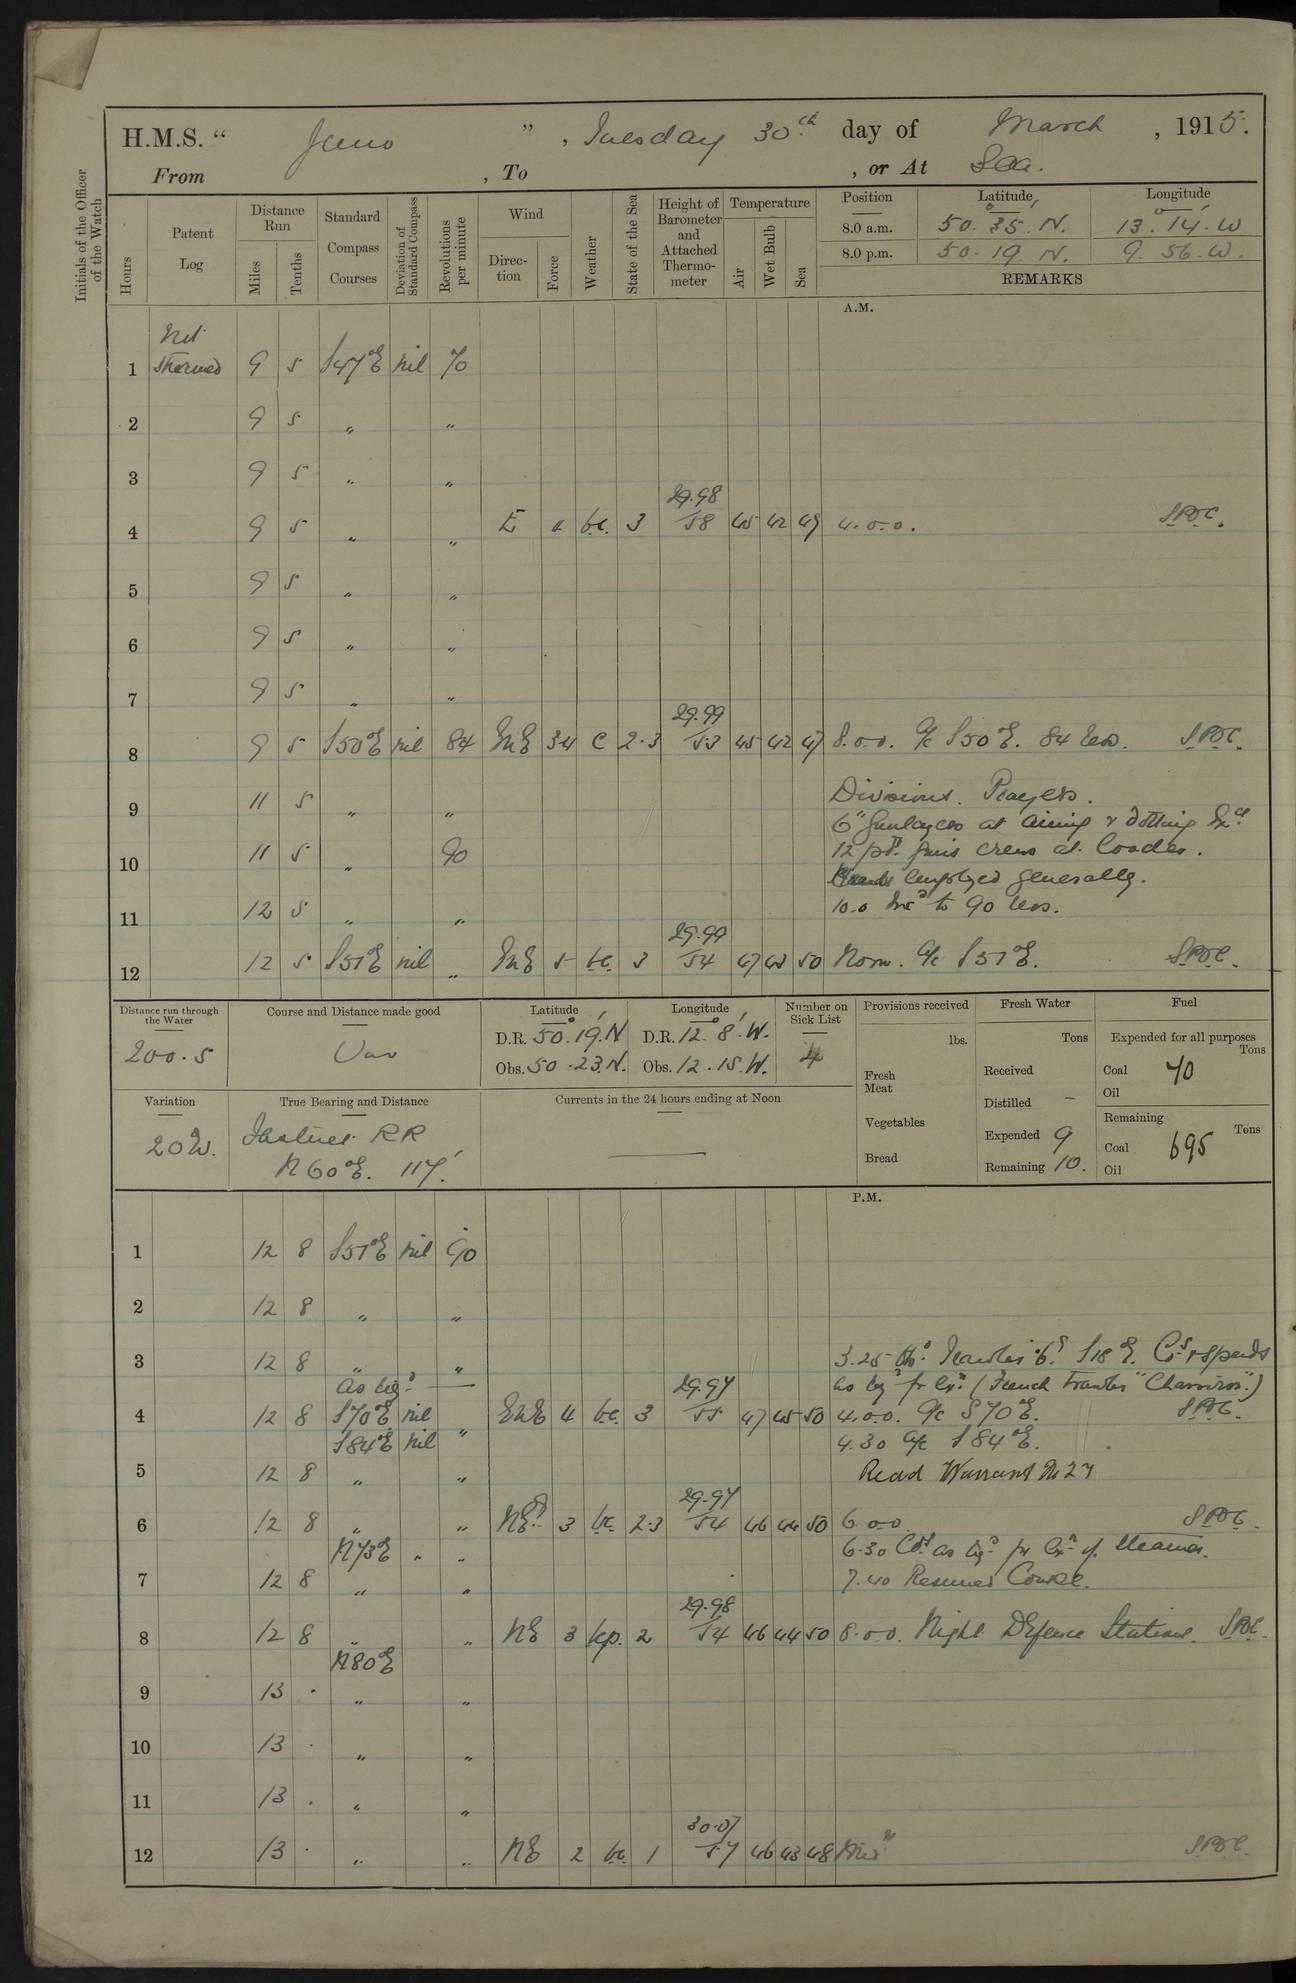 H.M.S. “ Juno ” , Tuesday 30th day of March , 1915.
From , To , or At Sea.
Initials of the Officer of the Watch
Hours
Patent Log
Distance Run
Miles
Tenths
Standard Compass Courses
Deviation of Standard Compass
Revolutions per minute
Wind
Direction
Force
Weather
State of the Sea
Height of Barometer and Attached Thermometer
Temperature
Air
Wet Bulb
Sea
Position Latitude Longitude
8.0 a.m. 50. 35. N. 13. 14. W
8.0 p.m. 50. 19. N. 9. 56. W.
REMARKS
A.M.
Not
1 Streamed 9 5 S47°E nil 70
2 9 5 " "
3 9 5 " "
29.98
4 9 5 " " E b.c. 3 58 45 42 49 4.0.0. SPDC.
5 9 5 " "
6 9 5 " "
7 9 5 " "
29.99
8 9 5 S50°E nil 84 ENE 3.4 c 2.3 53 45 42 47 8.0.0. A/c S50°E. 84 revs. SPDC.
9 11 5 " " Divisions. Prayers.
6" Gunlayers at aiming & dotting
10 11 5 " 90 12 pdr guns crews at loader.
Hands employed generally.
11 12 5 " " 10.0 Incd to 90 revs.
29.99
12 12 5 S51°E nil " ENE 5 b.c. 3 54 47 43 50 Noon. A/c S51°E. SPDC.
Distance run through the Water
200.5
Course and Distance made good
Var
Latitude
D.R. 50°.19'.N
Obs. 50.23.N.
Longitude
D.R. 12°.8'.W.
Obs. 12.15.W.
Number on Sick List
4
Provisions received
lbs.
Fresh Meat
Vegetables
Bread
Fresh Water
Tons
Received
Distilled –
Expended 9
Remaining 10.
Fuel
Expended for all purposes
Tons
Coal 70
Oil
Remaining
Tons
Coal 695
Oil
Variation
20°W.
True Bearing and Distance
Fastnet RR
N60°E. 117'.
Currents in the 24 hours ending at Noon
—
P.M.
1 12 8 S51°E nil 90
2 12 8 " "
3 12 8 " " 3.25 Obsd Trawler S18°E. Cos & speeds
As reqd — 29.97 as reqd for Exn (French trawler)
4 12 8 S70°E nil " ENE 4 b.c. 3 55 47 45 50 4.0.0. A/c S70°E. SPDC.
S84°E nil " 4.30 A/c S84°E.
5 12 8 " " Read Warrant No 27
29.97
6 12 8 " " NE 3 b.c. 2.3 54 46 44 50 6.0.0. SPDC.
N73°E " " 6.30 Cos as reqd for Exn of Steamer.
7 12 8 " " 7.40 Resumed Course.
29.98
8 12 8 " " NE 3 bcp. 2 54 46 44 50 8.0.0. Night Defence Stations. SPDC.
N80°E
9 13 . " "
10 13 . " "
11 13 . " "
30.07
12 13 . " " NE 2 b.c. 1 57 46 43 48 Midt SPDC.